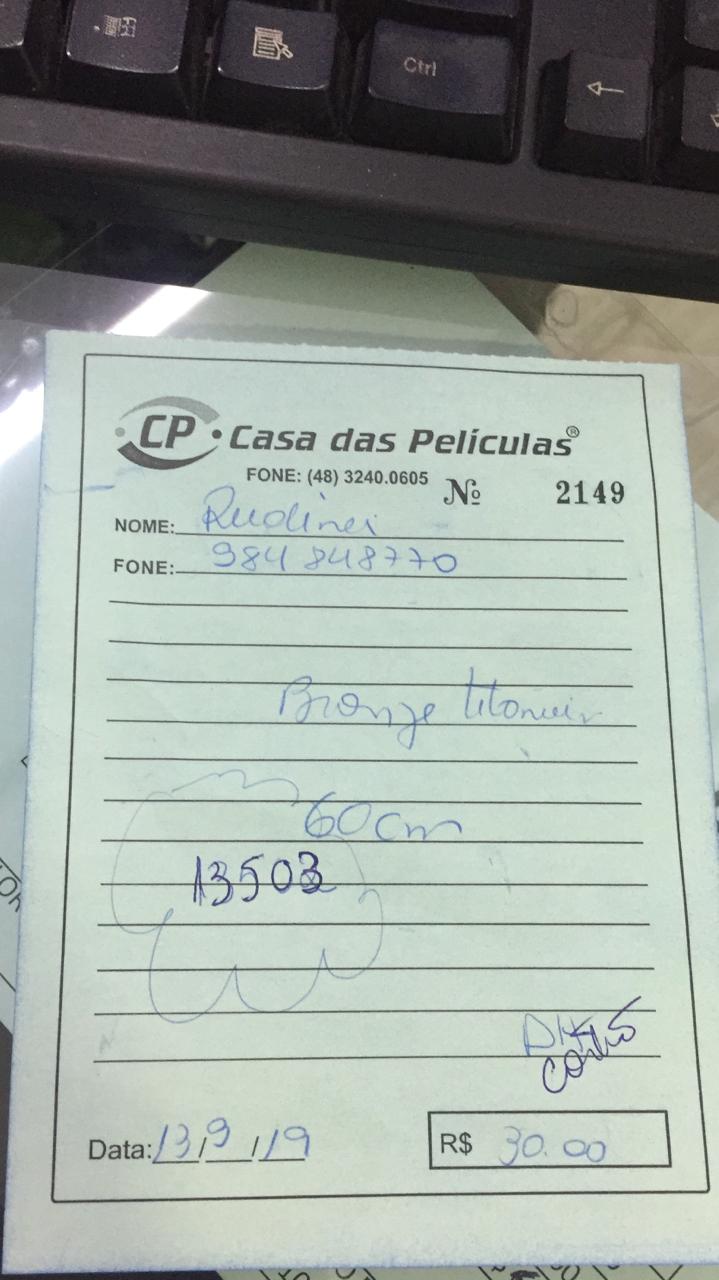 Ctrl
CP • Casa das Películas®
FONE: (48) 3240.0605 Nº 2149
NOME: Rudinei
FONE: 984 848770
Bronze
60cm
13503
Data: 13/9/19 R$ 30.00